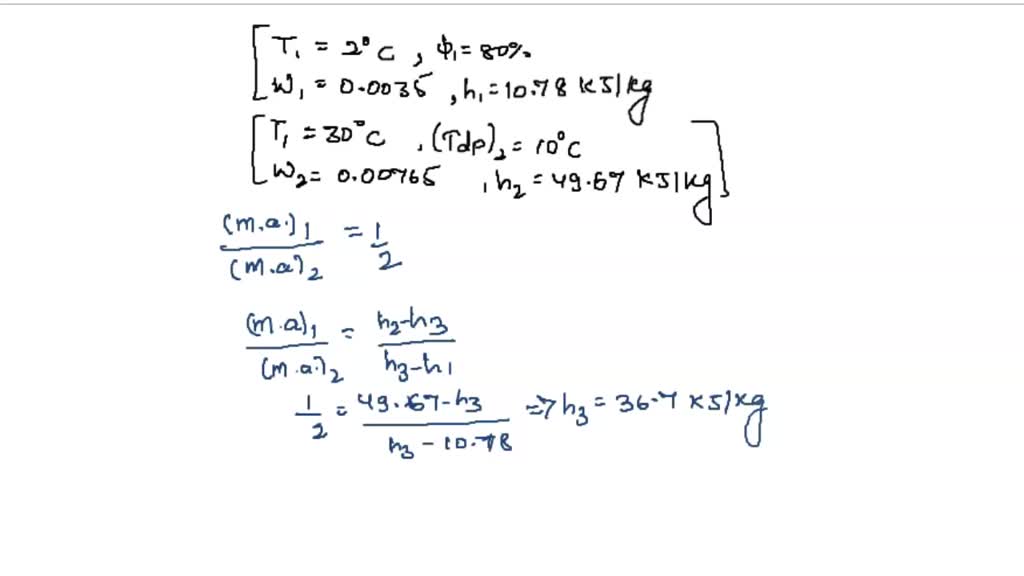 T₁ = 2°C, ϕ₁ = 80%.
W₁ = 0.0035, h₁ = 10.78 KJ/kg
T₁ = 30°C, (Tdp)₂ = 10°C
W₂ = 0.00765, h₂ = 49.67 KJ/kg
(m.a.)₁ / (m.a)₂ = 1/2
(m.a)₁ / (m.a.)₂ = h₂-h₃ / h₃-h₁
1/2 = 49.67-h₃ / h₃-10.78 => h₃ = 36.7 KJ/kg